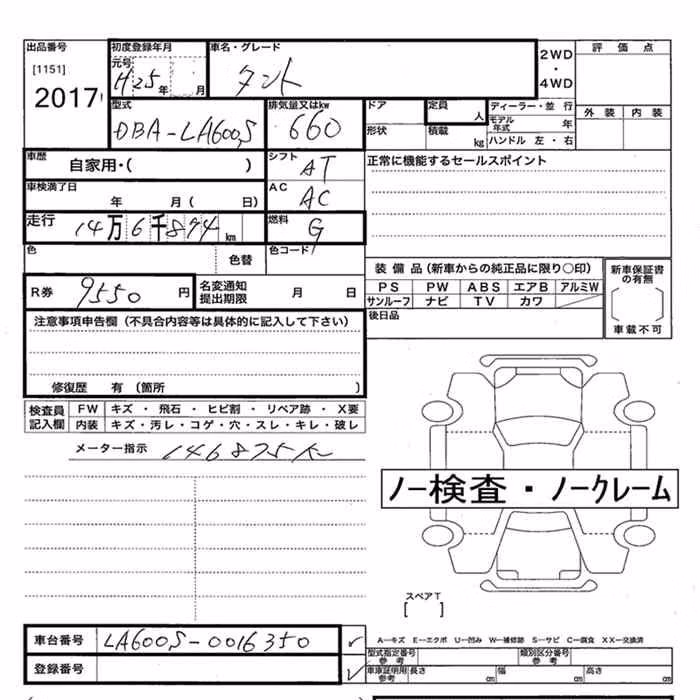 出品番号 初度登録年月 車名・グレード 2WD・4WD 評価点
[1151] 元号
2017 H25年 月 タント
外装 内装
型式 排気量又はkw ドア 定員 人 ディーラー・並行
DBA-LA600S 660 形状 積載 kg モデル年式 年
ハンドル 左・右
車歴 自家用・( ) シフト AT 正常に機能するセールスポイント
車検満了日 年 月( 日) AC AC
走行 14万6千874km 燃料 G
色 色替 色コード
装備品(新車からの純正品に限り○印) 新車保証書の有無
R券 9550円 名変通知提出期限 月 日 PS PW ABS エアB アルミW
サンルーフ ナビ TV カワ 車載不可
注意事項申告欄(不具合内容等は具体的に記入して下さい) 後日品
修復歴 有(箇所 )
検査員記入欄 FW キズ・飛石・ヒビ割・リペア跡・X要
内装 キズ・汚レ・コゲ・穴・スレ・キレ・破レ
メーター指示 146875K
ノー検査・ノークレーム
スペアT
[ ]
車台番号 LA600S-0016350 ✓ A―キズ E―エクボ U―凹み W―補修跡 S―サビ C―腐食 XX―交換済
型式指定番号参考 類別区分番号参考
登録番号 ✓ 車庫証明用参考 長さ cm 幅 cm 高さ cm